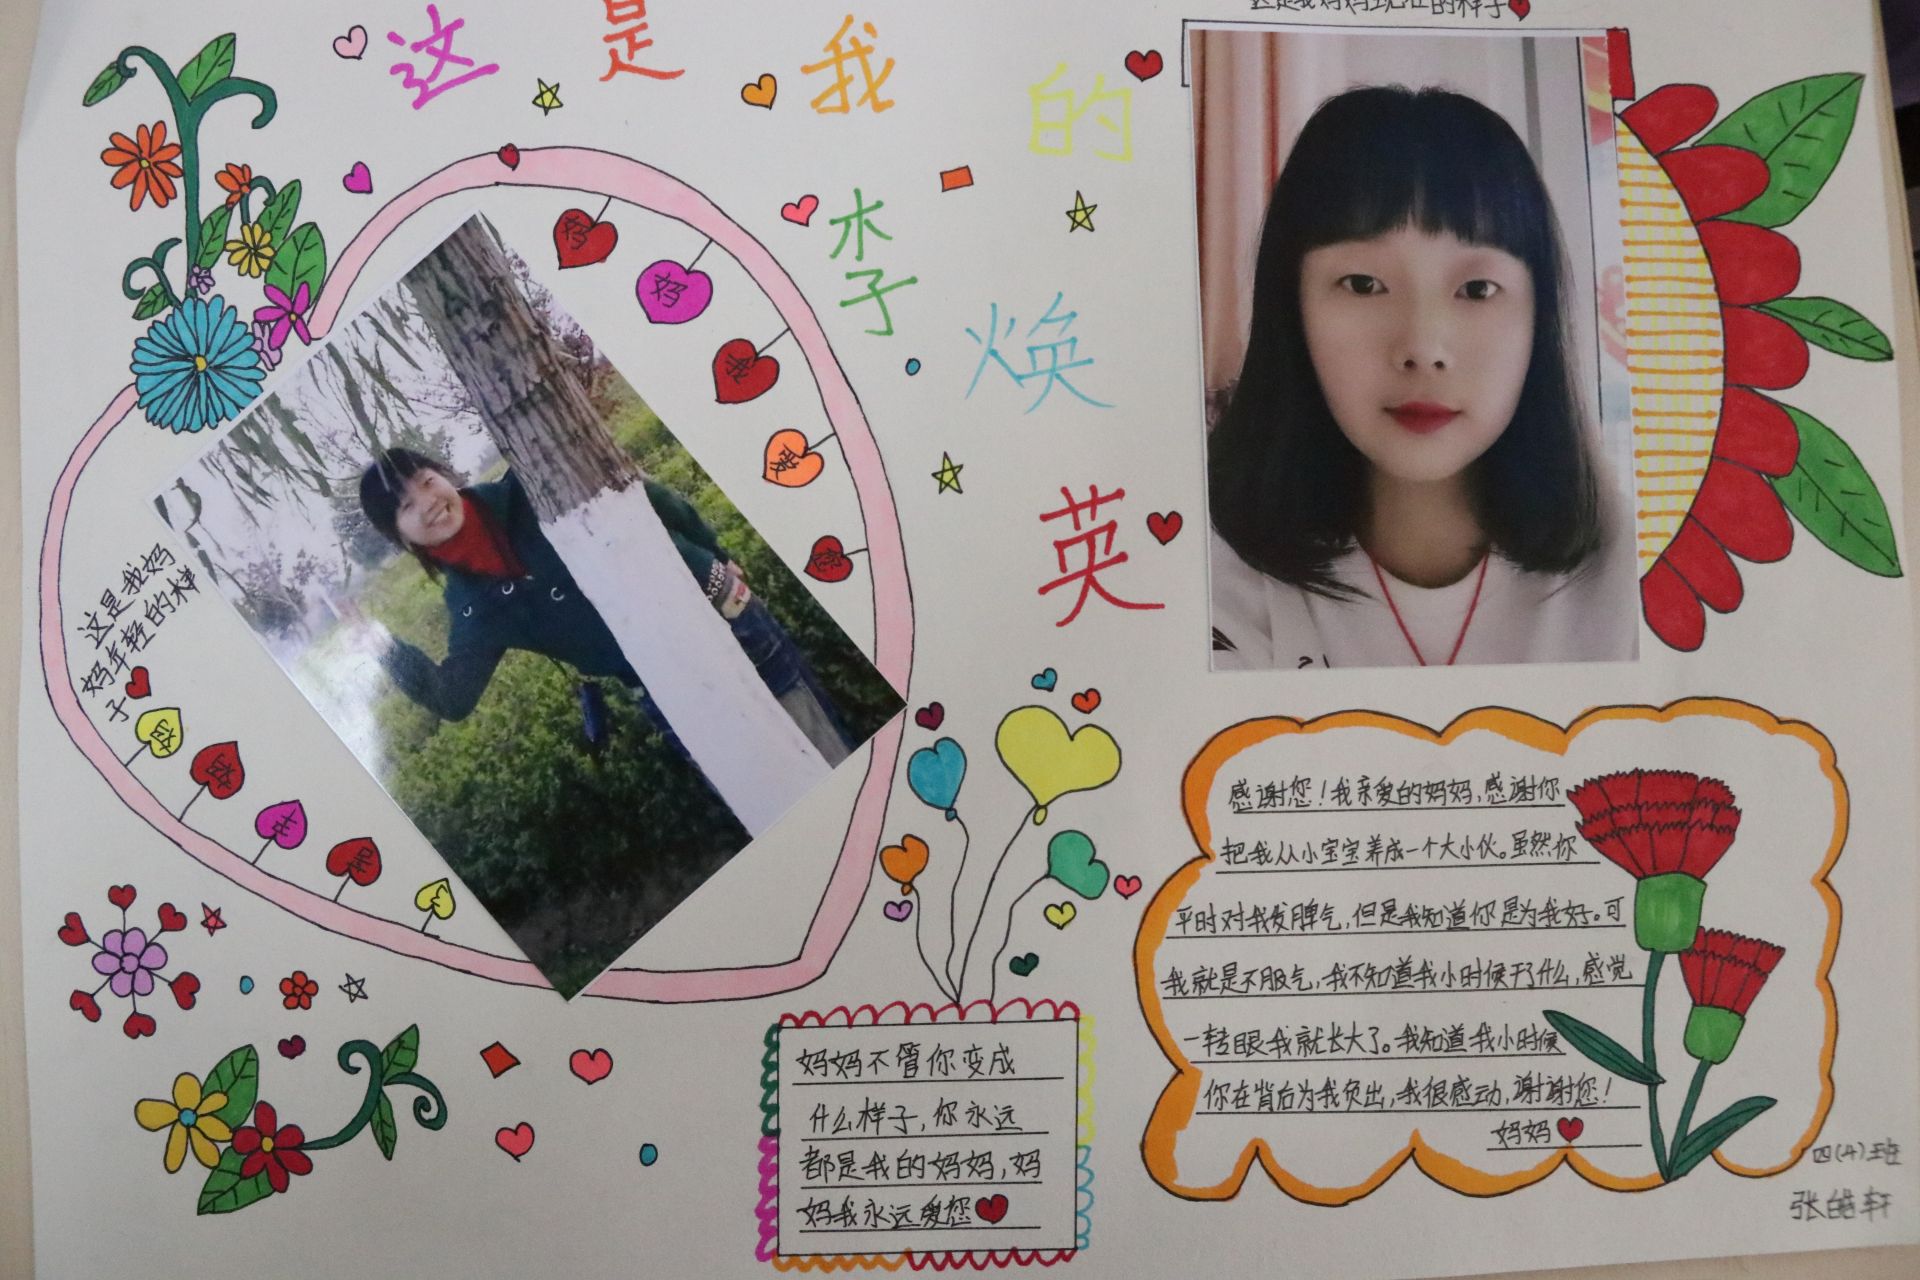 这是我的
李焕英
这是我妈妈现在的样子
妈
妈
我
爱
您
这是我妈
妈年轻的样
子
感谢您！我亲爱的妈妈，感谢你
把我从小宝宝养成一个大小伙。虽然你
平时对我发脾气，但是我知道你是为我好。可
我就是不服气，我不知道我小时候干了什么，感觉
一转眼我就长大了。我知道我小时候
你在背后为我负出，我很感动，谢谢您！
妈妈
妈妈不管你变成
什么样子，你永远
都是我的妈妈，妈
妈我永远爱您
四（4）班
张皓轩